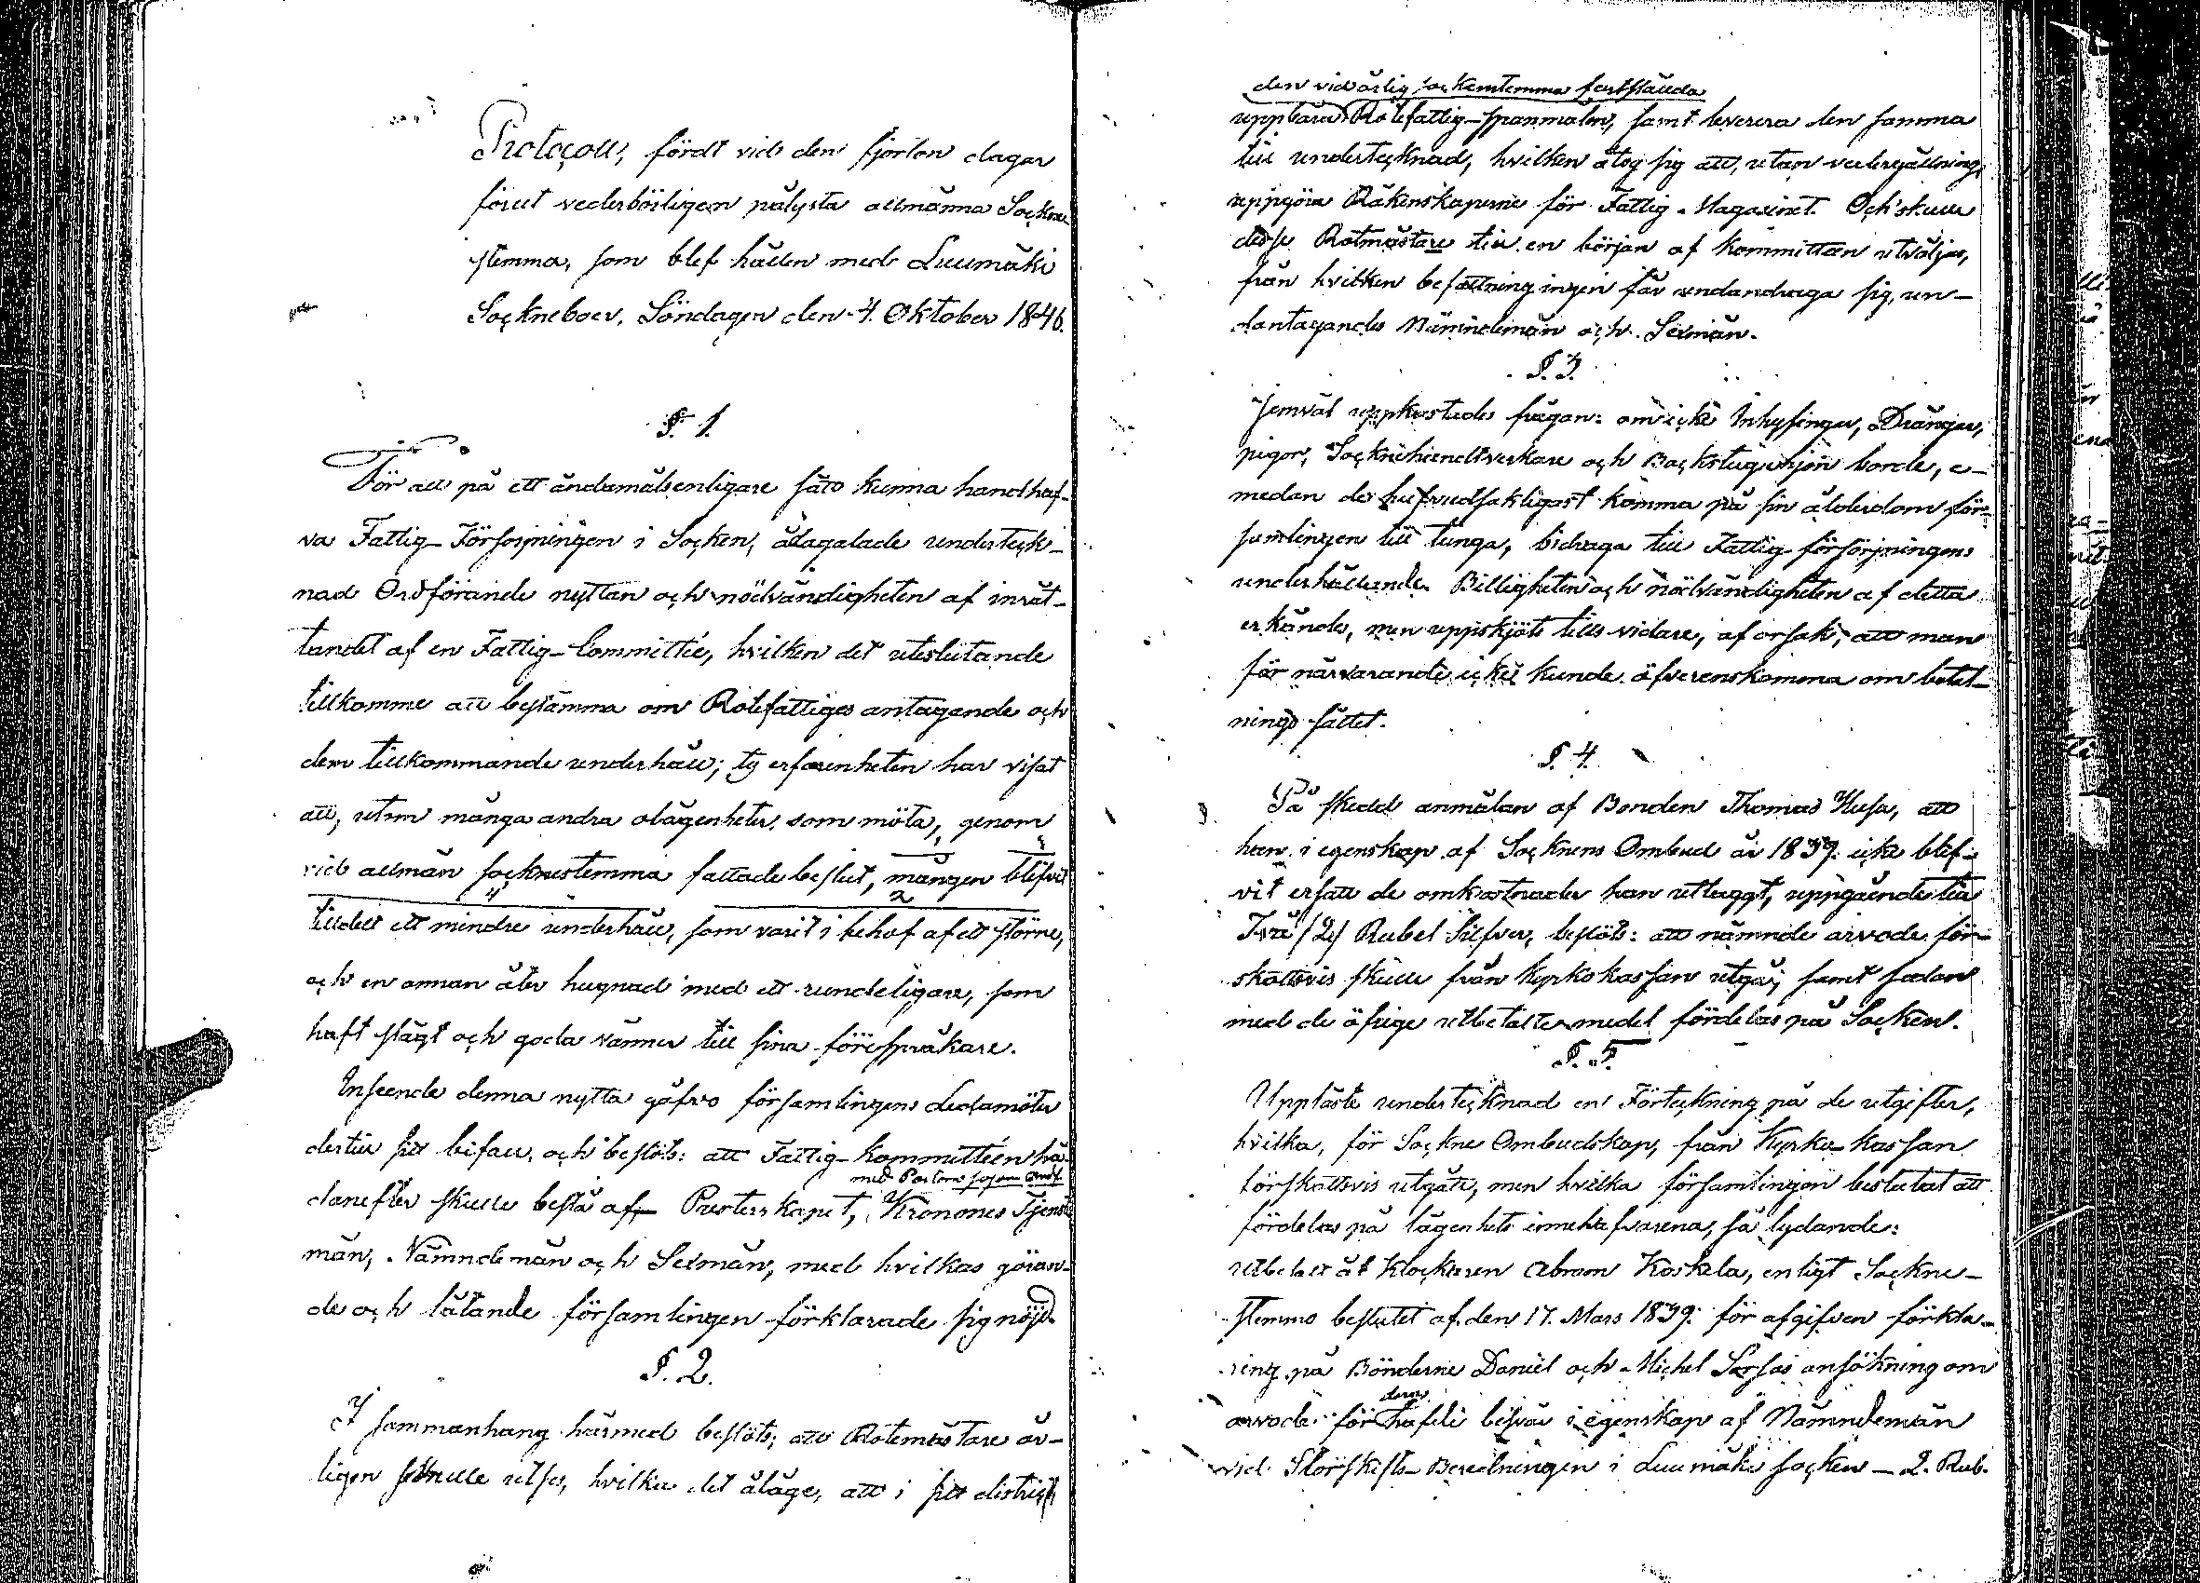 Protocoll, fördt vid den fjorton dagar
förut vederbörligen pålysta allmänna Sockne
stemma, som blef hållen med Luumäki
Socknebor, Söndagen den 4. Oktober 1846.
§. 1.
För att på ett ändamålsenligare sätt kunna handhaf-
va Fattig-Försörjningen i Socken, ådagalade underteck-
nad Ordförande nyttan och nödvändigheten af inrät-
tandet af en Fattig-Committée, hvilken det uteslutande
tillkomme att bestämma om Rotefattiges antagande och
dem tillkommande underhåll; ty erfarenheten har visat
att, utom många andra olägenheter, som möta, genom
vid allmän socknestemma fattade beslut, mången blifvit
tilldelt ett mindre underhåll, som varit i behof af ett större,
och en annan åter hugnad med ett rundeligare, som
haft slägt och goda vänner till sina förespråkare.
Inseende denna nytta gåfvo församlingens Ledamöter
dertill sitt bifall, och beslöts: att Fattig-kommittéen hä-
med Pastorn såsom Ordf.
danefter skulle bestå af Presterskapet, Kronones Tjenste
män, Nämndemän och Sexmän, med hvilkas göran-
de och låtande församlingen förklarade sig nöjd.
§. 2.
I sammanhang härmed beslöts; att Rotemästare år-
ligen skulle utses, hvilka det ålåge, att i sitt distrikt
den vid årlig sockenstemma fastställda
uppbära Rotefattig-spanmålen, samt leverera den samma
till undertecknad, hvilken åtog sig att, utan vedergällning,
uppgöra Räkenskaperne för Fattig-Magasinet. Och skulle
desse Rotmästare till en början af kommittéen utväljas,
från hvilken befattning ingen får undandraga sig, un-
dantagande Nämndemän och Sexmän.
§. 3.
Jemväl uppkastades frågan: om icke Inhysingar, Drängar,
pigor, Socknehandtverkare och Backstuguhjon borde, e-
medan de hufvudsakligast komma på sin ålderdom för-
samlingen till tunga, bidraga till Fattig-försörjningens
underhållande. Billigheten och nödvändigheten af detta
erkände, men uppskjöts tills vidare, af orsak, att man
för närvarande icke kunde öfverenskomma om betal-
nings sättet.
§. 4.
På skedd anmälan af Bonden Thomas Husu, att
han i egenskap af Socknens Ombud år 1839. icke blif-
vit ersatt de omkostnader han utlaggt, uppgående till
Två /2/ Rubel Silfver, beslöts: att nämnde arvode för-
skottsvis skulle från Kyrkokassan utgå; samt sedan
med de öfrige utbetalte medel fördelas på Socken.
§. 5.
Upplästs undertecknad en Förteckning på de utgifter,
hvilka, för Sockne Ombudskap, från Kyrko-kassan
förskottsvis utgått, men hvilka församlingen beslutat att
fördelas på lägenhets innehafvarena, så lydande:
utbetalt åt Klockaren Abram Koskela, enligt Sockne-
stemmo beslutet af den 17. Mars 1839. för afgifven förkla-
ring på Bönderne Daniel och Michel Sarsas ansökning om
dem
arvode för hafde besvär i egenskap af Nämndemän
vid Storskifts-Beredningen i Luumäki socken – 2. Rub.